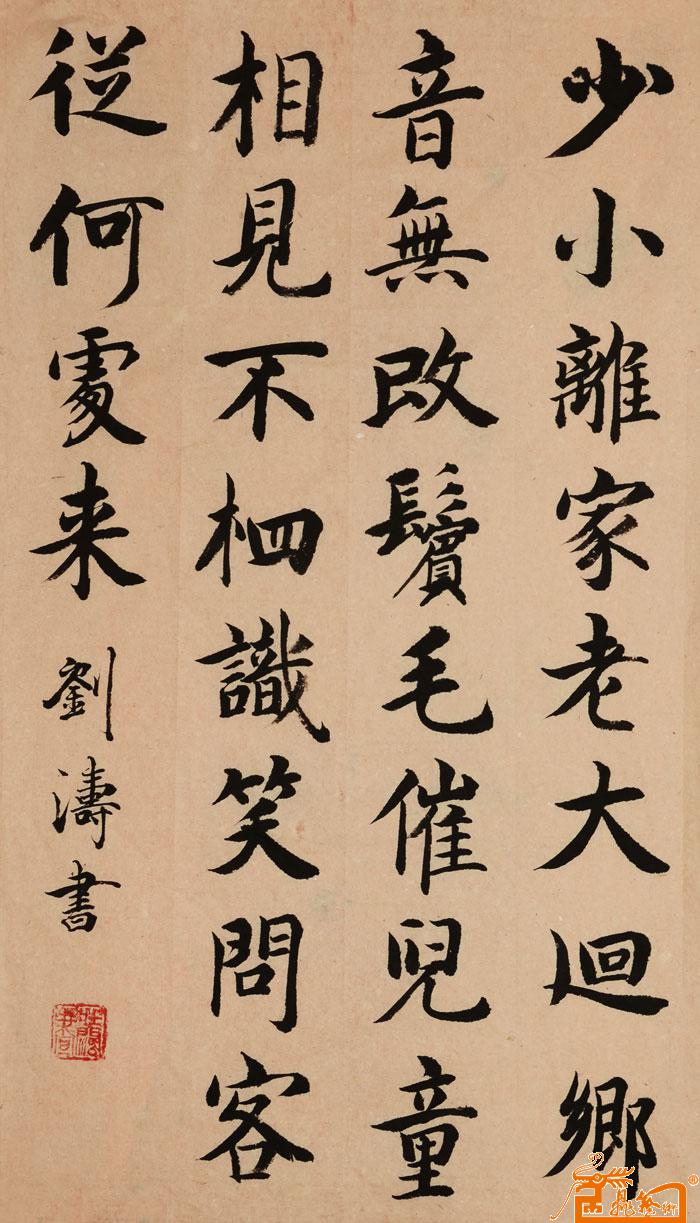 少小離家老大迴鄉
音無改鬢毛催兒童
相見不相識笑問客
從何處来
劉濤書